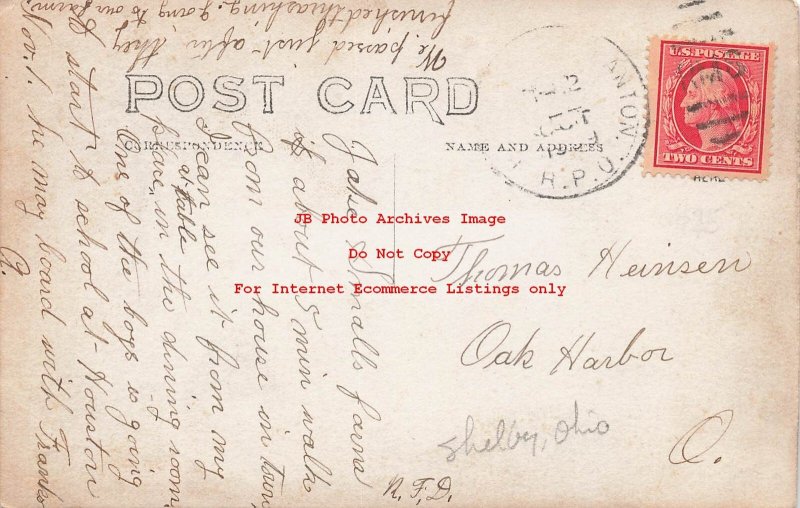 We passed just after they
finished thrashing. Going to our farm.
POST CARD
CORRESPONDENCE
NAME AND ADDRESS
ANTON
OCT
R.P.O.
U.S. POSTAGE
TWO CENTS
HERE
Jake Smalls farm
if about 5 min walk
from our house in town,
I can see it from my
place in the dining room
at table
One of the boys is going
to start to school at Houston
Nov. 1 he may board with Franks
A.
Thomas Heinsen
Oak Harbor
O.
R.F.D.
Shelby, Ohio
JB Photo Archives Image
Do Not Copy
For Internet Ecommerce Listings only